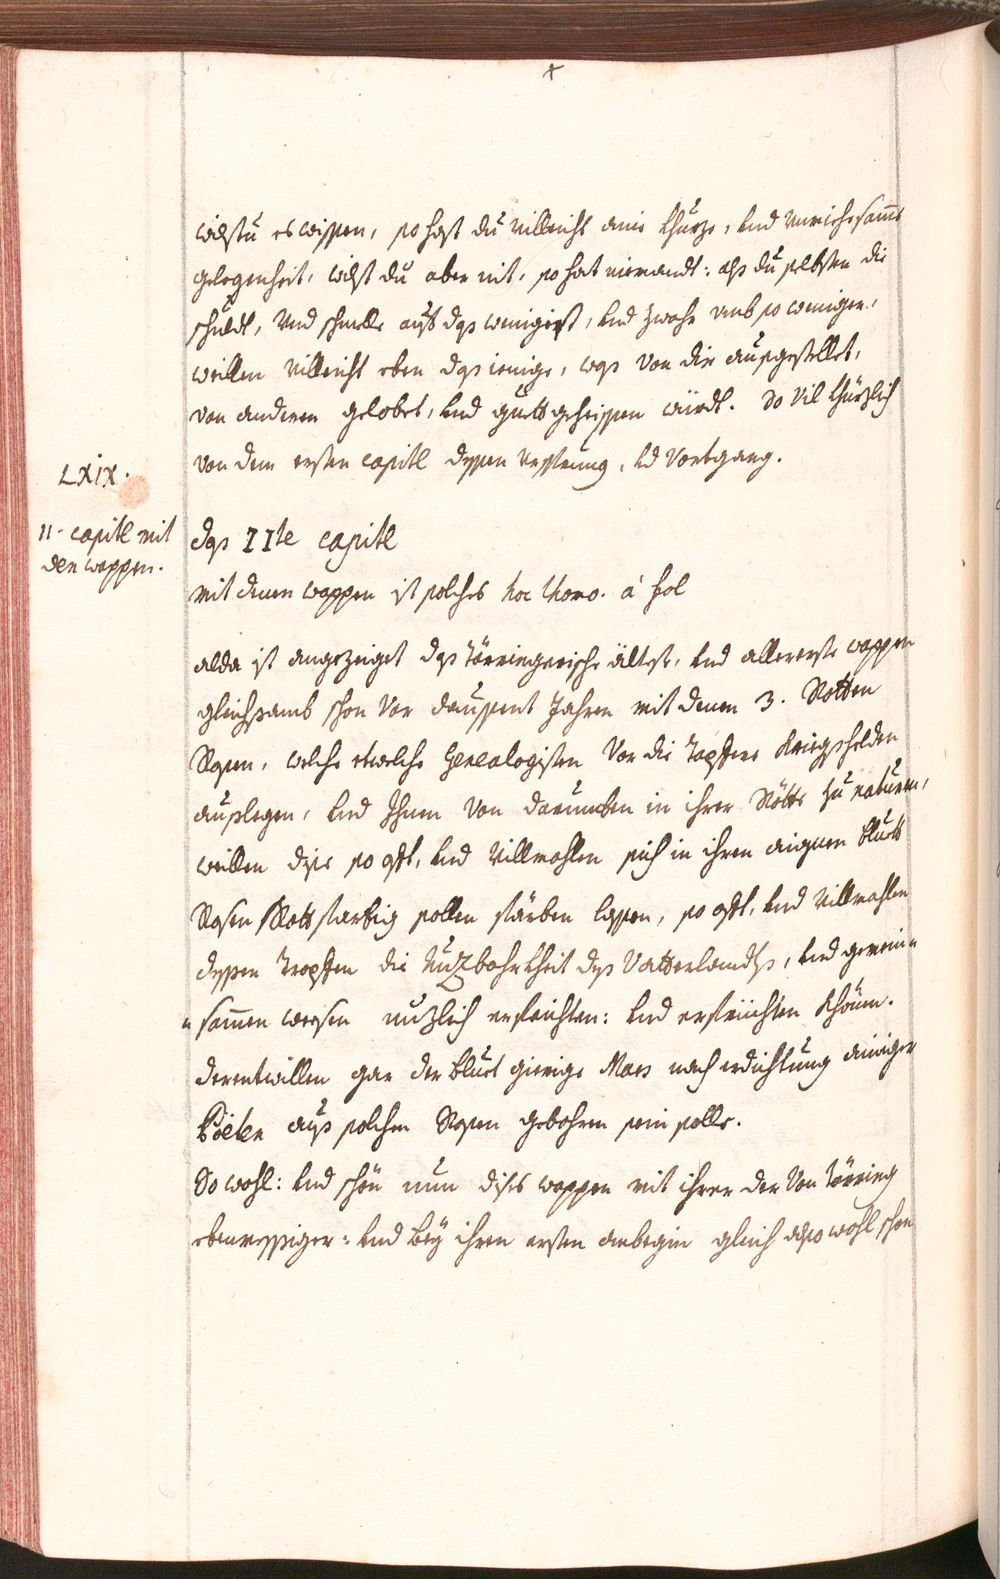 x
wilstu es wissen, so hast du villeicht ain khurze, und
gelegenheit, wilst du aber nit, so hat niemandt: alß du selbsten die
schuldt, und schmelle auff das wenigist, und zwahr umb so weniger,
weillen villeicht eben das ienige, was von dir außgestellet,
von anderen gelobet, und guett geheissen würdt. So vil khürzlich
von dem ersten capitl dessen, und vortgang.
LXIX.
II. capitl mit
den wappen.
das IIte capitl
mit denen wappen ist solches hoc thomo. à fol
alda ist angezeiget das Törringerische älteste, und allererste wappen
gleichsamb schon vor daussent Jahren mit denen 3. Rotten
Rosen, welche etwelche Genealogisten vor die Tapfere kriegshelden
außlegen, und Ihnen von darumben in ihrer Rötte zu naturen,
weillen dise so offt, und villmahlen sich in ihren aignen bluett
Rosen Rottfarbig sollen färben lassen, so offt, und villmahlen
dessen Tropffen die Nuzbahrkheit des Vatterlandts, und gemein-
-samen weesen nuzlich erfeichten: und erfrüchten khönen.
derentwillen gar der bluet girige Mars nach erdichtung ainiger
Poëten auß solchen Rosen gebohren sein solle.
So wohl: und schön nun dises wappen mit ihrer der von Törring
ebenmessiger: und bey ihren ersten anbegin gleich also wohl schon